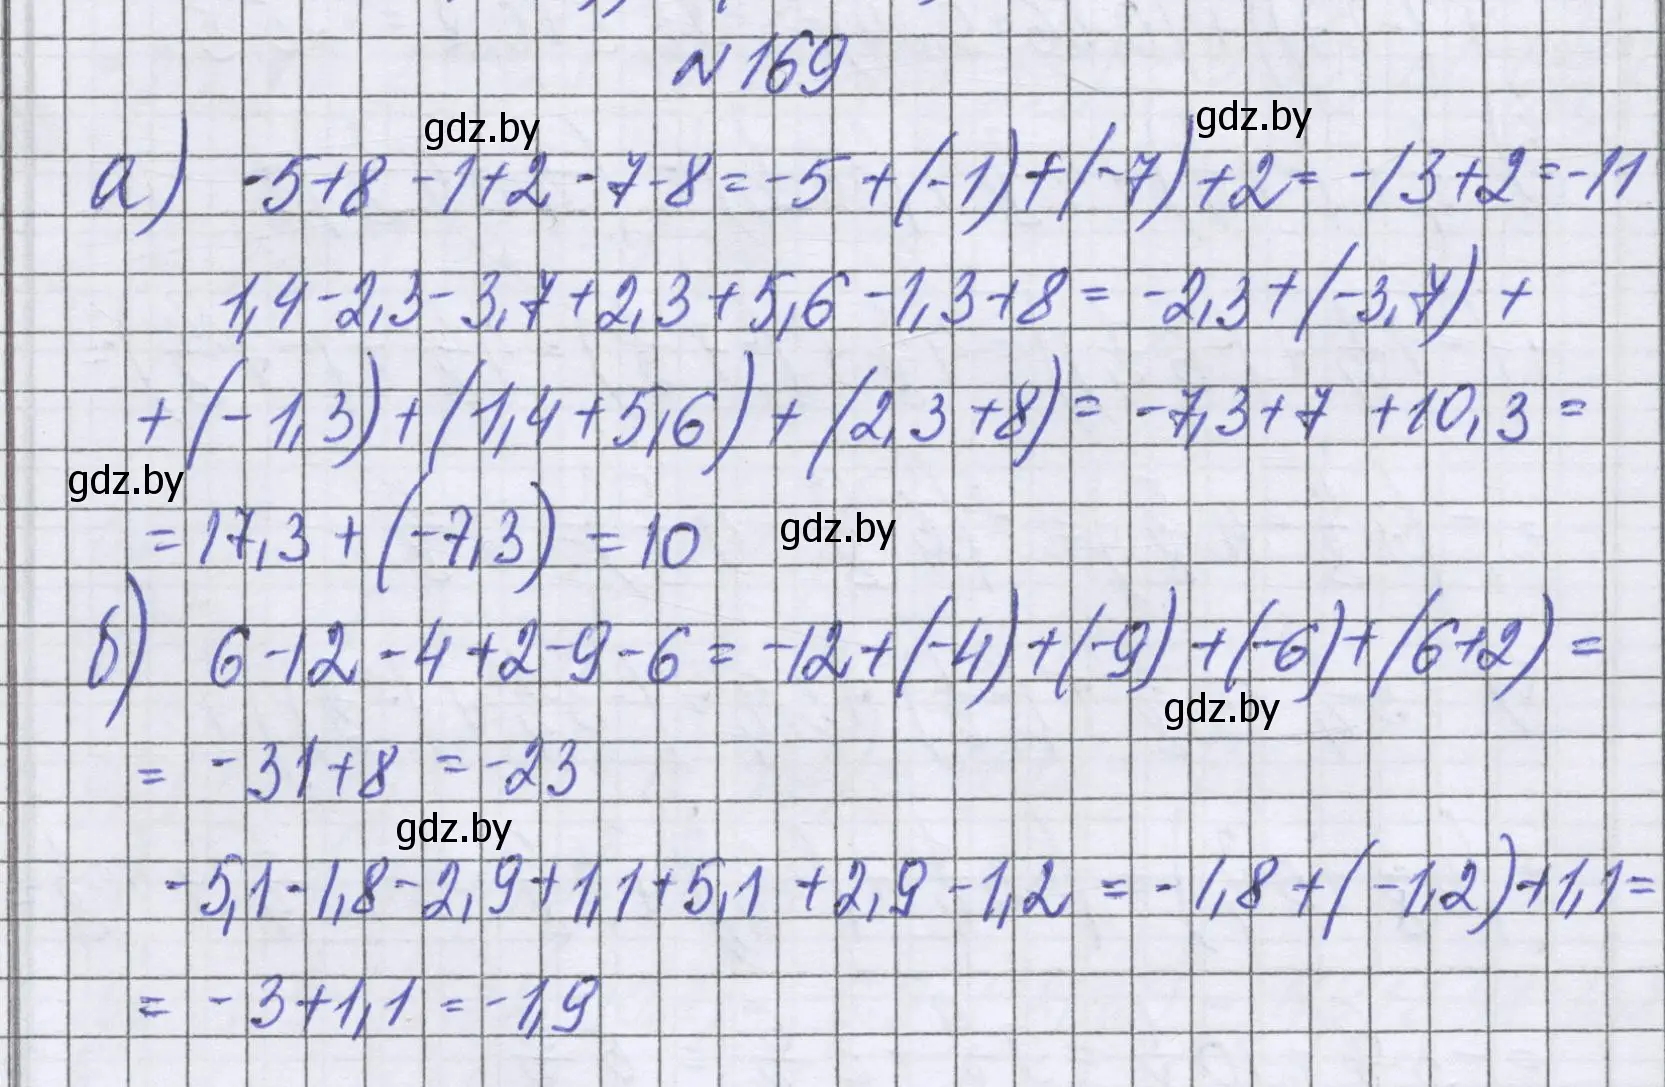 № 169
gdz.by
gdz.by
а) -5+8-1+2-7-8=-5+(-1)+(-7)+2=-13+2=-11
1,4-2,3-3,7+2,3+5,6-1,3+8=-2,3+(-3,7)+
+(-1,3)+(1,4+5,6)+(2,3+8)=-7,3+7+10,3=
gdz.by
=17,3+(-7,3)=10
gdz.by
б) 6-12-4+2-9-6=-12+(-4)+(-9)+(-6)+(6+2)=
gdz.by
=-31+8=-23
gdz.by
-5,1-1,8-2,9+1,1+5,1+2,9-1,2=-1,8+(-1,2)+1,1=
=-3+1,1=-1,9